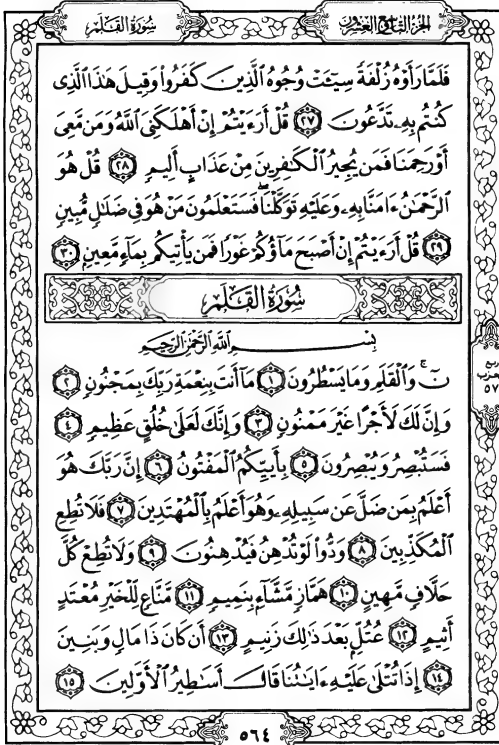 سُورَةُ القَلَمِ الجُزْءُ التَّاسِعُ وَالعِشْرُونَ
فَلَمَّا رَأَوْهُ زُلْفَةً سِيٓـَٔتْ وُجُوهُ ٱلَّذِينَ كَفَرُوا۟ وَقِيلَ هَٰذَا ٱلَّذِى
كُنتُم بِهِۦ تَدَّعُونَ ٢٧ قُلْ أَرَءَيْتُمْ إِنْ أَهْلَكَنِىَ ٱللَّهُ وَمَن مَّعِىَ
أَوْ رَحِمَنَا فَمَن يُجِيرُ ٱلْكَٰفِرِينَ مِنْ عَذَابٍ أَلِيمٍ ٢٨ قُلْ هُوَ
ٱلرَّحْمَٰنُ ءَامَنَّا بِهِۦ وَعَلَيْهِ تَوَكَّلْنَا ۖ فَسَتَعْلَمُونَ مَنْ هُوَ فِى ضَلَٰلٍ مُّبِينٍ
٢٩ قُلْ أَرَءَيْتُمْ إِنْ أَصْبَحَ مَآؤُكُمْ غَوْرًا فَمَن يَأْتِيكُم بِمَآءٍ مَّعِينٍۭ ٣٠
سُورَةُ القَلَمِ
بِسْمِ ٱللَّهِ ٱلرَّحْمَٰنِ ٱلرَّحِيمِ
نٓ ۚ وَٱلْقَلَمِ وَمَا يَسْطُرُونَ ١ مَآ أَنتَ بِنِعْمَةِ رَبِّكَ بِمَجْنُونٍ ٢
وَإِنَّ لَكَ لَأَجْرًا غَيْرَ مَمْنُونٍ ٣ وَإِنَّكَ لَعَلَىٰ خُلُقٍ عَظِيمٍ ٤
فَسَتُبْصِرُ وَيُبْصِرُونَ ٥ بِأَييِّكُمُ ٱلْمَفْتُونُ ٦ إِنَّ رَبَّكَ هُوَ
أَعْلَمُ بِمَن ضَلَّ عَن سَبِيلِهِۦ وَهُوَ أَعْلَمُ بِٱلْمُهْتَدِينَ ٧ فَلَا تُطِعِ
ٱلْمُكَذِّبِينَ ٨ وَدُّوا۟ لَوْ تُدْهِنُ فَيُدْهِنُونَ ٩ وَلَا تُطِعْ كُلَّ
حَلَّافٍ مَّهِينٍ ١٠ هَمَّازٍ مَّشَّآءٍۭ بِنَمِيمٍ ١١ مَّنَّاعٍ لِّلْخَيْرِ مُعْتَدٍ
أَثِيمٍ ١٢ عُتُلٍّۭ بَعْدَ ذَٰلِكَ زَنِيمٍ ١٣ أَن كَانَ ذَا مَالٍ وَبَنِينَ
١٤ إِذَا تُتْلَىٰ عَلَيْهِ ءَايَٰتُنَا قَالَ أَسَٰطِيرُ ٱلْأَوَّلِينَ ١٥
ربع
الحزب
٥٧
٥٦٤